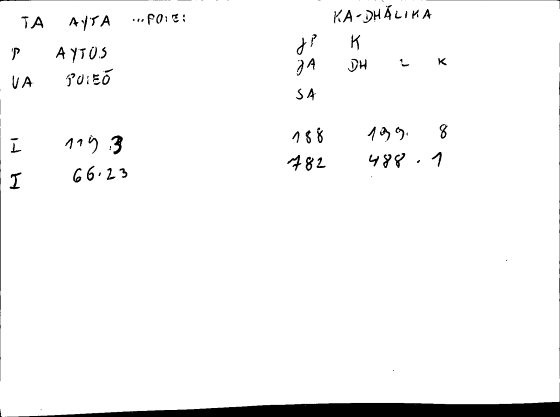 TA AYTA ...POIEI
P AYTOS
VA POIEŌ
I 119.3
I 66.23
KA-DHĀLIKA
JP K
JA DH - K
SA
188 199. 8
782 488.1